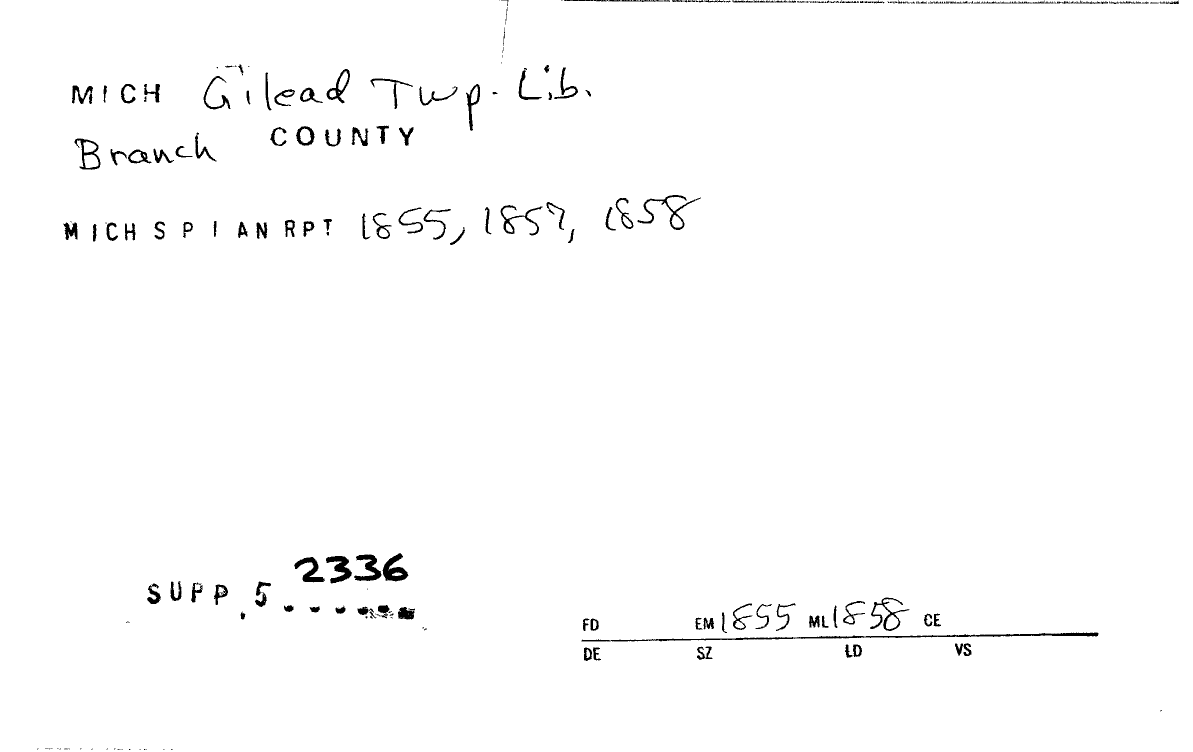 MICH Gilead Twp. Lib.
Branch COUNTY
MICH S P I AN RPT 1855, 1857, 1858
2336
SUPP. 5......
FD EM 1855 ML 1858 CE
DE SZ LD VS